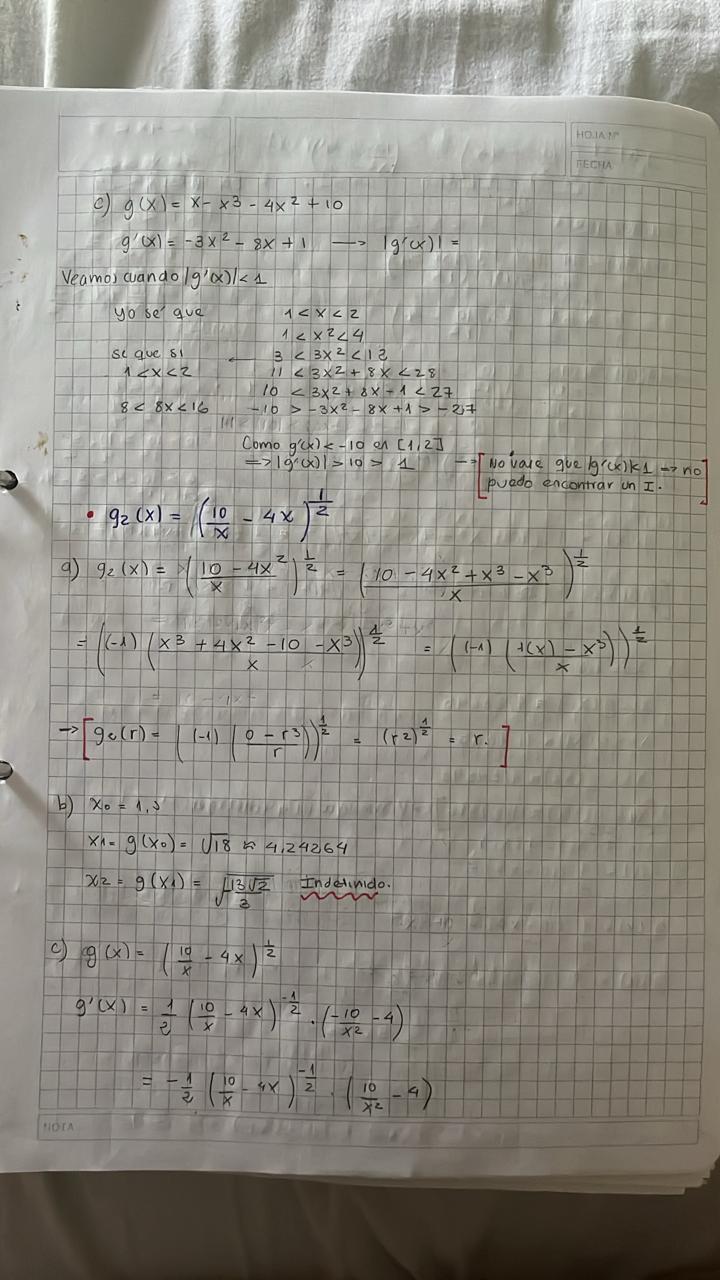 HOJA N°
FECHA
c) g(x) = x - x3 - 4x² + 10
g'(x) = -3x² - 8x + 1 → |g'(x)| =
Veamos cuando |g'(x)| < 1
yo sé que 1 < x < 2
1 < x² < 4
se que si ← 3 < 3x² < 12
1 < x < 2 11 < 3x² + 8x < 28
10 < 3x² + 8x - 1 < 27
8 < 8x < 16 -10 > -3x² - 8x + 1 > -27
Como g'(x) < -10 en [1,2]
⇒ |g'(x)| > 10 > 1 → [No vale que |g'(x)|<1 ⇒ no
puedo encontrar un I.]
• g₂(x) = (10/x - 4x)^1/2
a) g₂(x) = ((10 - 4x²)/x)^1/2 = ((10 - 4x² + x³ - x³)/x)^1/2
= ((-1) (x³ + 4x² - 10 - x³)/x)^1/2 = ((-1) (f(x) - x³)/x))^1/2
→ [g₂(r) = ((-1) (0 - r³)/r))^1/2 = (r2)^1/2 = r.]
b) x₀ = 1,5
x1 = g(x₀) = √18 ≈ 4,24264
x2 = g(x1) = √13√2/3 Indefinido.
c) g(x) = (10/x - 4x)^1/2
g'(x) = 1/2 (10/x - 4x)^-1/2 · (-10/x² - 4)
= -1/2 (10/x - 4x)^-1/2 · (10/x² - 4)
NOTA